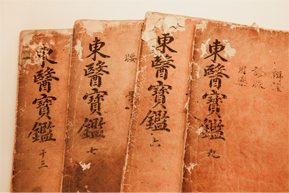 東醫寶鑑 十三
東醫寶鑑 七
東醫寶鑑 六
東醫寶鑑 九